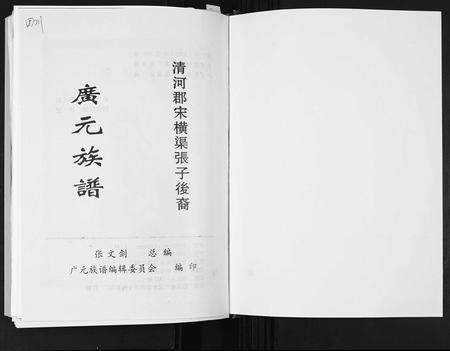 四川
清河郡宋横渠張子後裔
廣元族譜
张文剑 总编
广元族谱编辑委员会 编印